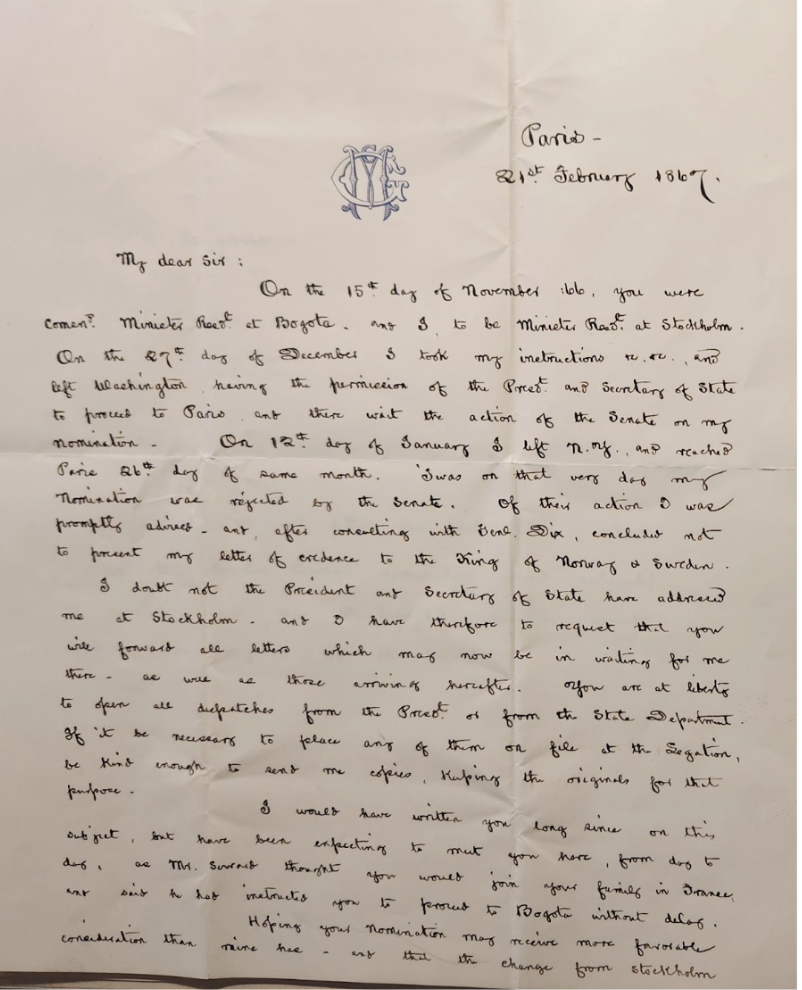 Paris -
21st February 1867.
My dear Sir :
On the 15th day of November '66, you were
comend. Minister Resdt. at Bogota. and I, to be Minister Resdt. at Stockholm.
On the 27th day of December I took my instructions &c. &c., and
left Washington, having the permission of the Presdt. and Secretary of State
to proceed to Paris, and there wait the action of the Senate on my
nomination - On 12th day of January I left N.Y., and reached
Paris 26th day of same month. 'Twas on that very day my
Nomination was rejected by the Senate. Of their action I was
promptly advised - and, after consulting with Genl. Dix, concluded not
to present my letter of credence to the King of Norway & Sweden.
I doubt not the President and Secretary of State have addressed
me at Stockholm - and I have therefore to request that you
will forward all letters which may now be in waiting for me
there - as well as those arriving hereafter. You are at liberty
to open all dispatches from the Presdt. or from the State Department.
If it be necessary to place any of them on file at the Legation,
be kind enough to send me copies, keeping the originals for that
purpose.
I would have written you long since on this
subject, but have been expecting to meet you here, from day to
day, as Mr. Seward thought you would join your family in France,
and said he had instructed you to proceed to Bogota without delay.
Hoping your Nomination may receive more favorable
consideration than mine has - and that the change from Stockholm